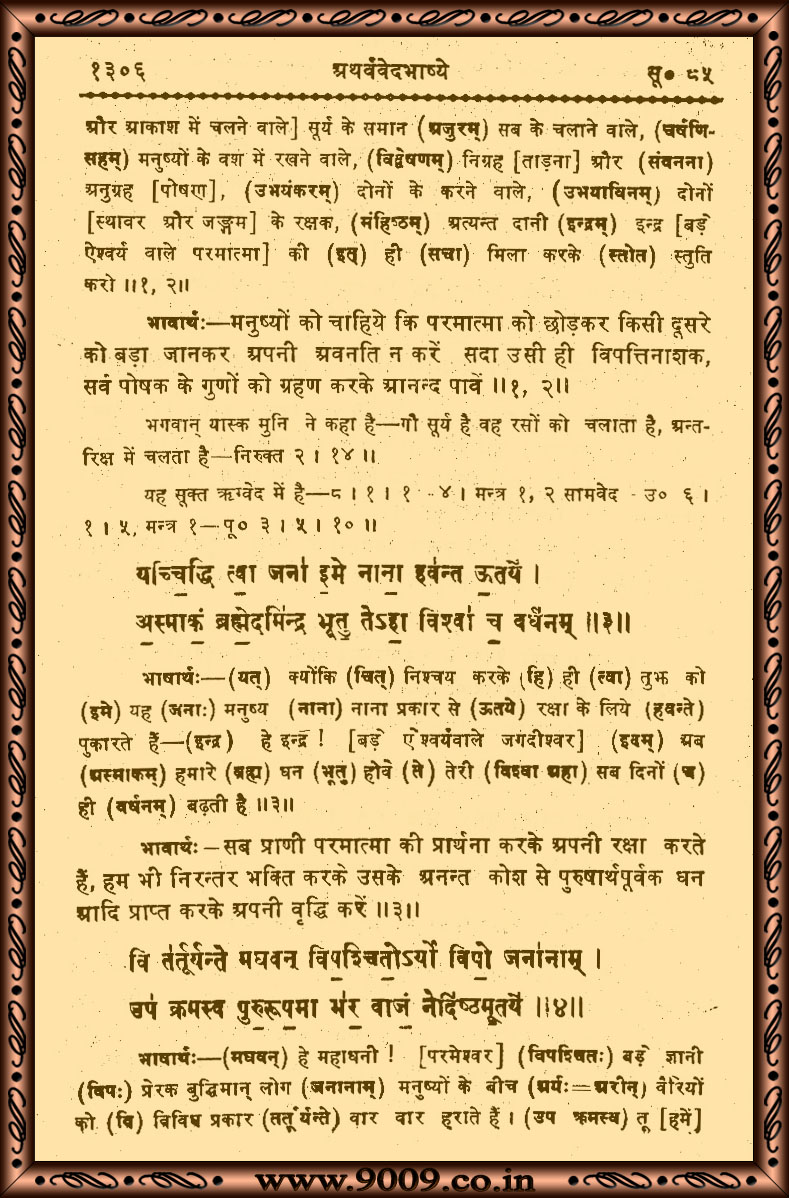 १३०६ अथर्ववेदभाष्ये सू० ८५
और आकाश में चलने वाले] सूर्य के समान (अजुरम्) सब के चलाने वाले, (चर्षणि-
सहम्) मनुष्यों के वश में रखने वाले, (विद्वेषणम्) निग्रह [ताड़ना] और (संवनना)
अनुग्रह [पोषण], (उभयंकरम्) दोनों के करने वाले, (उभयाविनम्) दोनों
[स्थावर और जङ्गम] के रक्षक, (मंहिष्ठम्) अत्यन्त दानी (इन्द्रम्) इन्द्र [बड़े
ऐश्वर्य वाले परमात्मा] की (इत्) ही (सचा) मिला करके (स्तोत) स्तुति
करो ॥१, २॥
भावार्थः—मनुष्यों को चाहिये कि परमात्मा को छोड़कर किसी दूसरे
को बड़ा जानकर अपनी अवनति न करें सदा उसी ही विपत्तिनाशक,
सर्व पोषक के गुणों को ग्रहण करके आनन्द पावें ॥१, २॥
भगवान् यास्क मुनि ने कहा है—गौ सूर्य है वह रसों को चलाता है, अन्त-
रिक्ष में चलता है—निरुक्त २ । १४ ॥
यह सूक्त ऋग्वेद में है—८ । १ । १ -४ । मन्त्र १, २ सामवेद - उ० ६ ।
१ । ५, मन्त्र १—पू० ३ । ५ । १० ॥
यच्चि॒द्धि त्वा॒ जना॑ इ॒मे नाना॒ हव॑न्त ऊ॒तये॑ ।
अ॒स्माकं॒ ब्रह्मे॒दमि॑न्द्र भूतु॒ तेऽहा॒ विश्वा॑ च॒ वर्ध॑नम् ॥३॥
भाषार्थः—(यत्) क्योंकि (चित्) निश्चय करके (हि) ही (त्वा) तुझ को
(इमे) यह (जनाः) मनुष्य (नाना) नाना प्रकार से (ऊतये) रक्षा के लिये (हवन्ते)
पुकारते हैं—(इन्द्र) हे इन्द्र ! [बड़े ऐश्वर्यवाले जगदीश्वर] (इदम्) अब
(अस्माकम्) हमारे (ब्रह्म) धन (भूतु) होवे (ते) तेरी (विश्वा अहा) सब दिनों (च)
ही (वर्धनम्) बढ़ती है ॥३॥
भावार्थः—सब प्राणी परमात्मा की प्रार्थना करके अपनी रक्षा करते
हैं, हम भी निरन्तर भक्ति करके उसके अनन्त कोश से पुरुषार्थपूर्वक धन
आदि प्राप्त करके अपनी वृद्धि करें ॥३॥
वि त॑र्तूर्यन्ते मघवन् विप॒श्चितो॒ऽर्यो विपो॒ जना॑नाम् ।
उप॑ क्रमस्व पुरु॒रूप॒मा भ॑र॒ वाजं॒ नेदि॑ष्ठमू॒तये॑ ॥४॥
भाषार्थः—(मघवन्) हे महाधनी ! [परमेश्वर] (विपश्चितः) बड़े ज्ञानी
(विपः) प्रेरक बुद्धिमान् लोग (जनानाम्) मनुष्यों के बीच (अर्यः=अरीन्) वैरियों
को (वि) विविध प्रकार (तर्तूर्यन्ते) वार वार हराते हैं । (उप क्रमस्व) तू [हमें]
www.9009.co.in